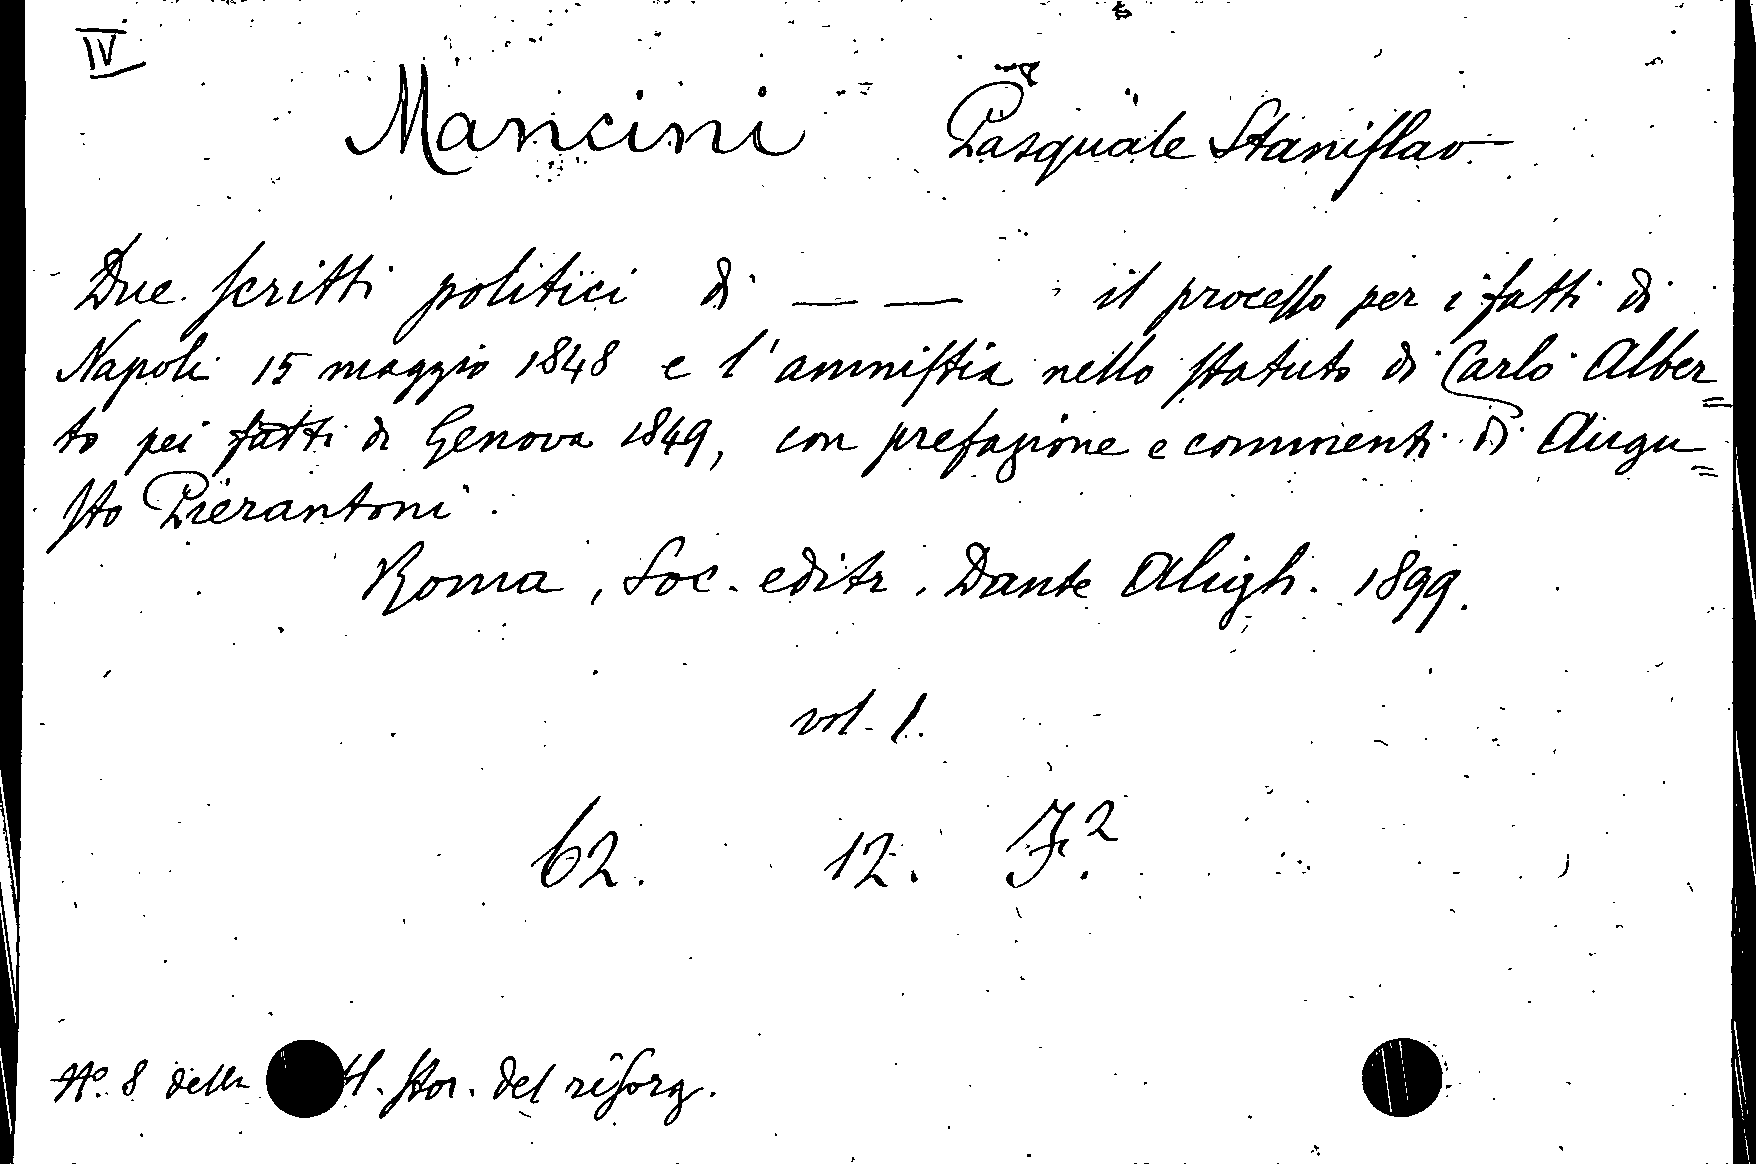 IV
Mancini Pasquale Stanislao
Due scritti politici di — — il processo per i fatti di
Napoli 15 maggio 1848 e l'amnistia nello statuto di Carlo Alber=
to pei fatti di Genova 1849, con prefazione e commenti di Augu=
sto Pierantoni.
Roma, Soc. editr. Dante Aligh. 1899.
vol. 1.
62. 12. F.2
N.o 8 della stor. del risorg.